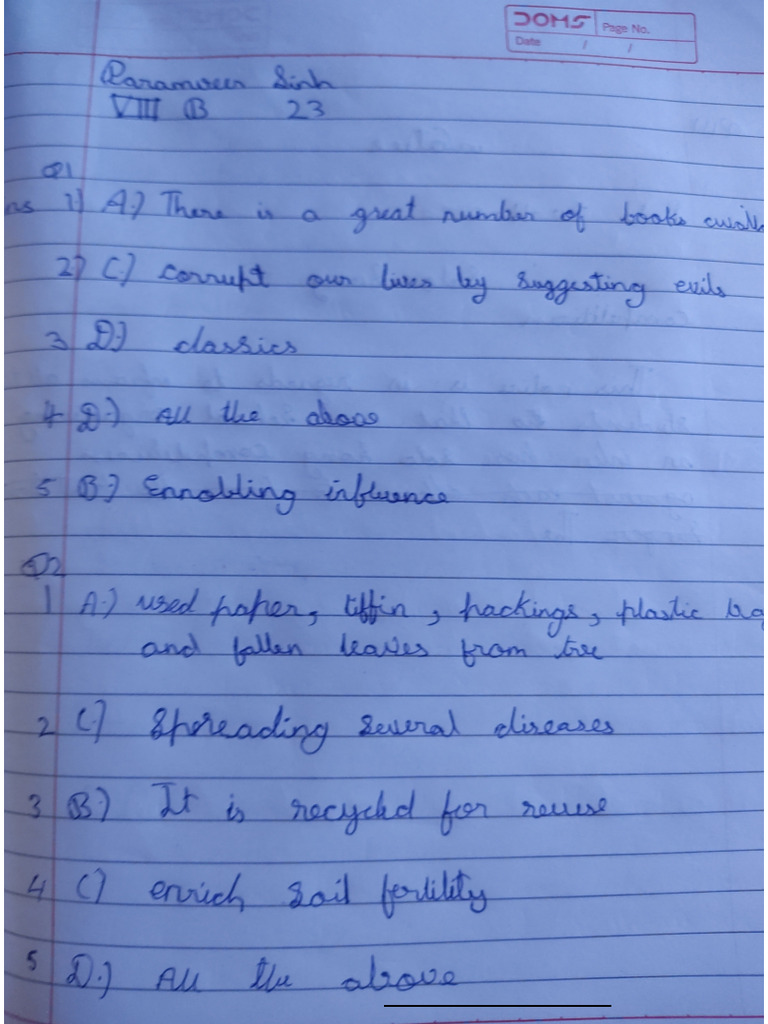 DOMS Page No.
Date / /
Paramveer Sinh
VIII B 23
Q1
ns 1) A.) There is a great number of books
2) C.) corrupt our lives by suggesting evils
3 D.) classics
4 D.) All the above
5 B.) Ennobling influence
Q2
1 A.) used paper, tiffin, packings, plastic
and fallen leaves from tree
2 C.) Spreading several diseases
3 B.) It is recycled for reuse
4 C) enrich soil fertility
5 D.) All the above